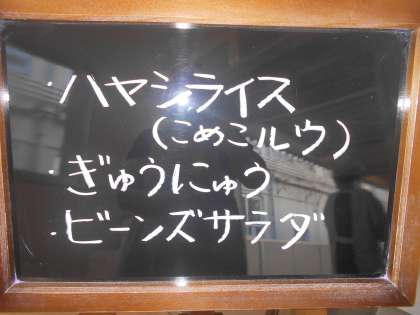 ・ハヤシライス
(こめこルウ)
・ぎゅうにゅう
・ビーンズサラダ